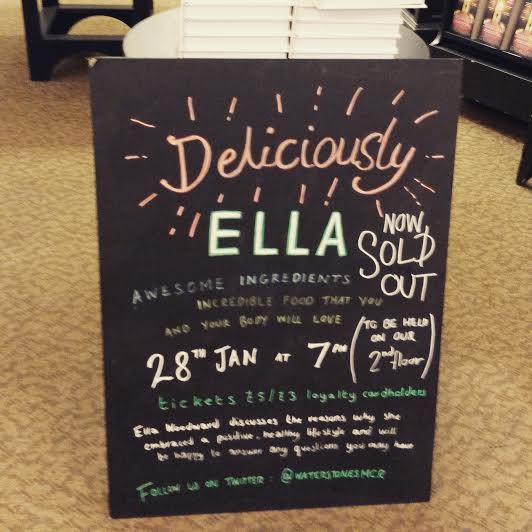 Deliciously
ELLA
NOW
SOLD
OUT
AWESOME INGREDIENTS
INCREDIBLE FOOD THAT YOU
AND YOUR BODY WILL LOVE
28TH JAN AT 7PM (TO BE HELD
ON OUR
2nd floor)
tickets £5/£3 loyalty cardholders
Ella Woodward discusses the reasons why she
embraced a positive, healthy lifestyle and will
be happy to answer any questions you may have
FOLLOW US ON TWITTER : @WATERSTONESMCR